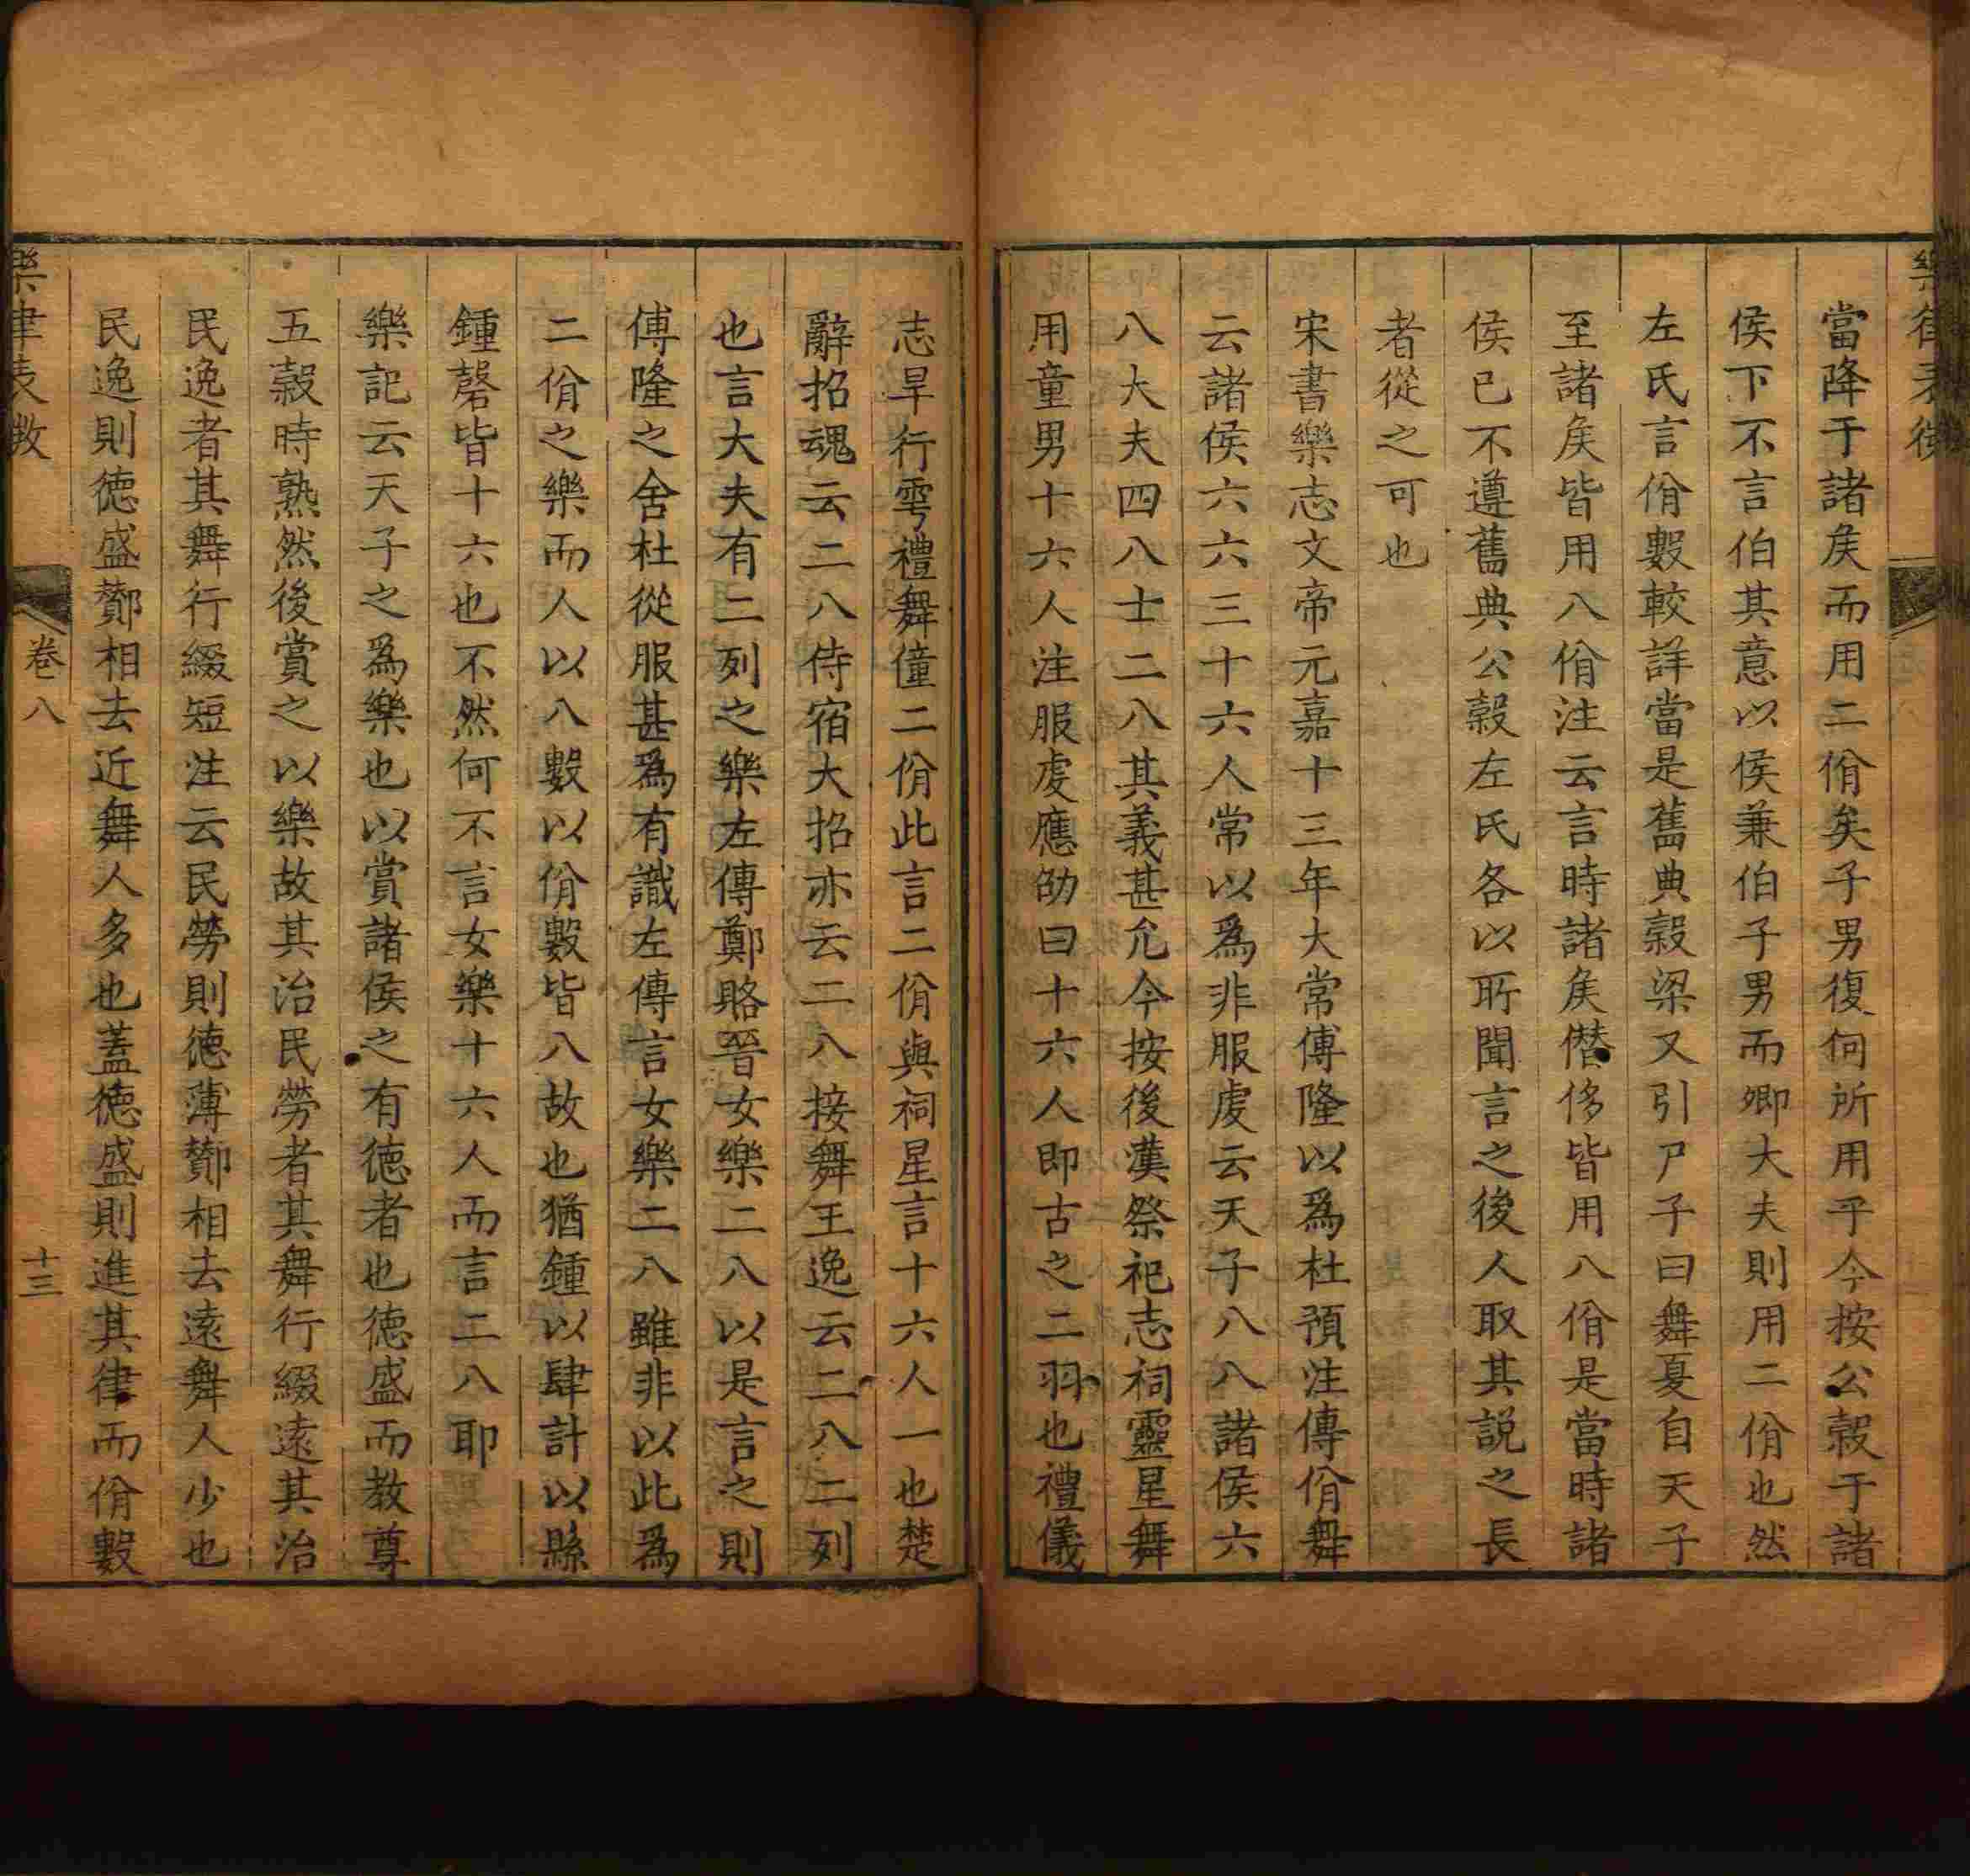 樂律表微
當降于諸矦而用二佾矣子男復何所用乎今按公糓于諸
侯下不言伯其意以侯兼伯子男而卿大夫則用二佾也然
左氏言佾數較詳當是舊典糓梁又引尸子曰舞夏自天子
至諸矦皆用八佾注云言時諸矦僭侈皆用八佾是當時諸
侯已不遵舊典公糓左氏各以所聞言之後人取其説之長
者從之可也
宋書樂志文帝元嘉十三年大常傅隆以爲杜預注傳佾舞
云諸侯六六三十六人常以爲非服虔云天子八八諸侯六
八大夫四八士二八其義甚允今按後漢祭祀志祠靈星舞
用童男十六人注服虔應劭曰十六人即古之二羽也禮儀
志旱行雩禮舞僮二佾此言二佾與祠星言十六人一也楚
辭招魂云二八侍宿大招亦云二八接舞王逸云二八二列
也言大夫有二列之樂左傳鄭賂晉女樂二八以是言之則
傅隆之舍杜從服甚爲有識左傳言女樂二八雖非以此爲
二佾之樂而人以八數以佾數皆八故也猶鍾以肆計以縣
鍾磬皆十六也不然何不言女樂十六人而言二八耶
樂記云天子之爲樂也以賞諸侯之有德者也德盛而教尊
五糓時熟然後賞之以樂故其治民勞者其舞行綴遠其治
民逸者其舞行綴短注云民勞則德薄酇相去遠舞人少也
民逸則德盛酇相去近舞人多也蓋德盛則進其律而佾數
樂律表微
卷八
十三